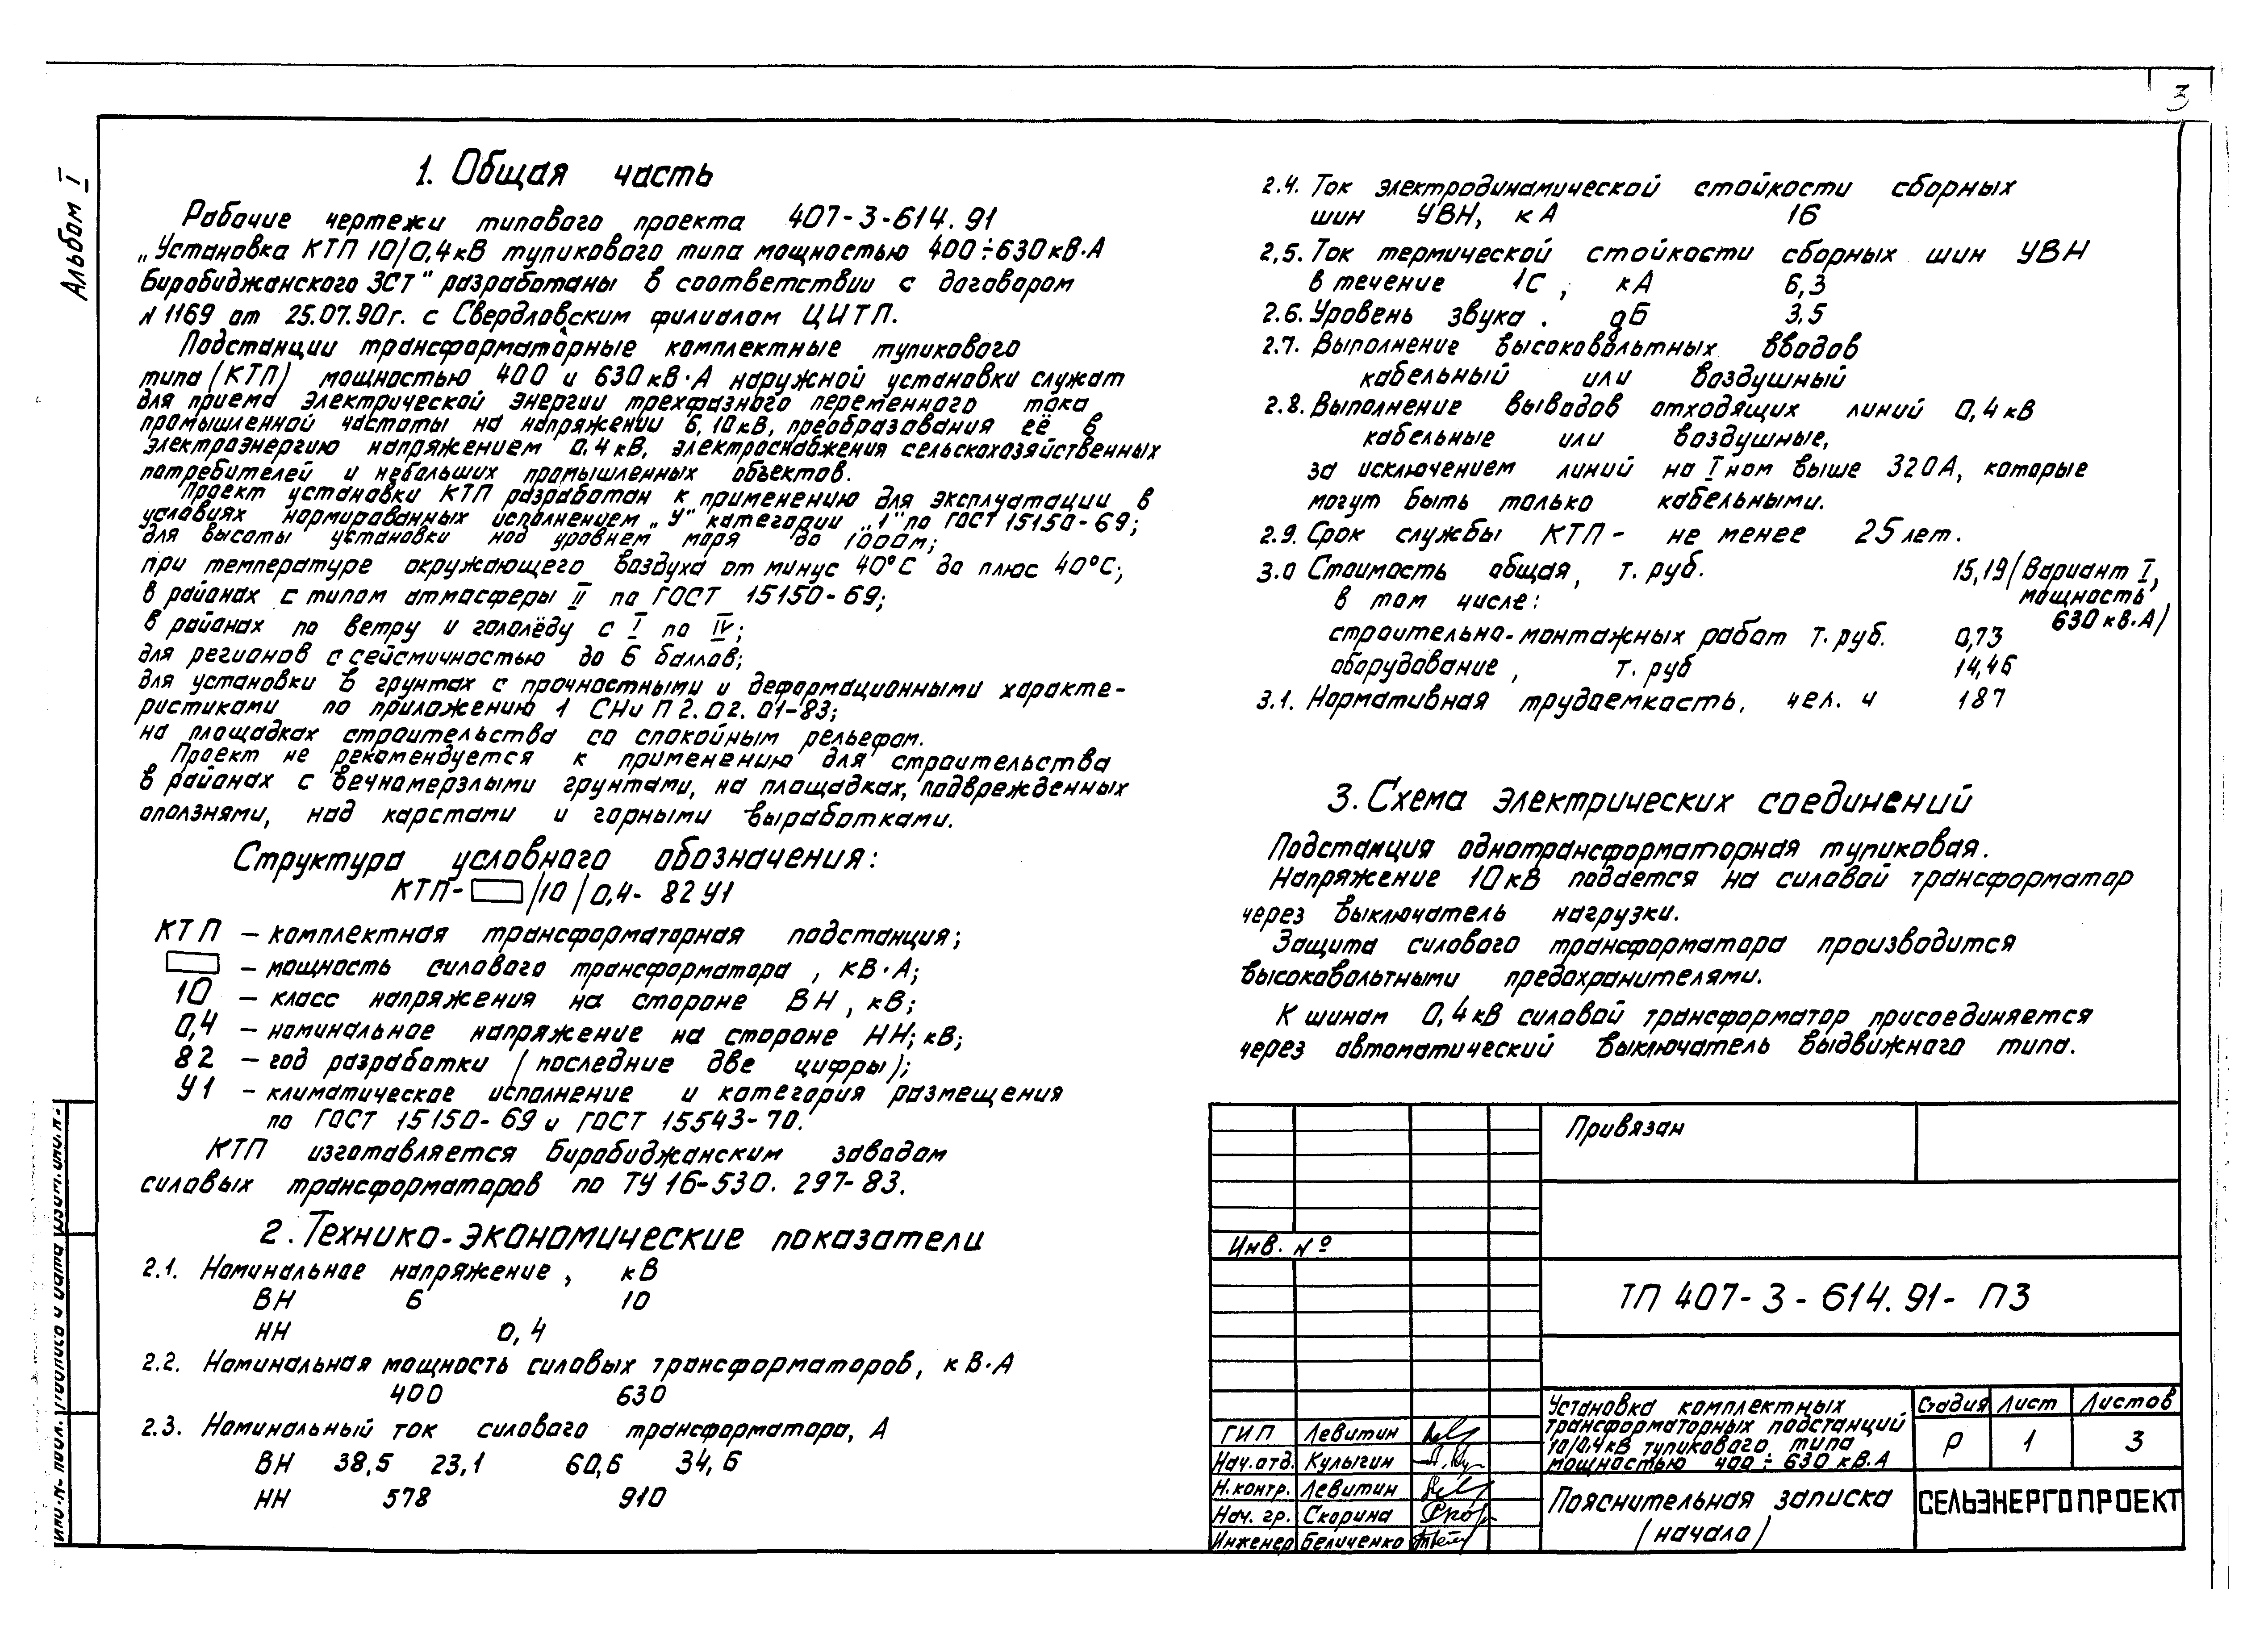 3
Альбом I
1. Общая часть
Рабочие чертежи типового проекта 407-3-614.91
„Установка КТП 10/0,4кВ тупикового типа мощностью 400÷630кВ·А
Биробиджанского ЗСТ" разработаны в соответствии с договором
N 1169 от 25.07.90г. с Свердловским филиалом ЦИТП.
Подстанции трансформаторные комплектные тупикового
типа (КТП) мощностью 400 и 630кВ·А наружной установки служат
для приема электрической энергии трехфазного переменного тока
промышленной частоты на напряжении 6, 10кВ, преобразования её в
электроэнергию напряжением 0.4кВ, электроснабжения сельскохозяйственных
потребителей и небольших промышленных объектов.
Проект установки КТП разработан к применению для эксплуатации в
условиях нормированных исполнением „У" категории „1" по ГОСТ 15150-69;
для высоты установки над уровнем моря до 1000м;
при температуре окружающего воздуха от минус 40°С до плюс 40°С;
в районах с типом атмосферы II по ГОСТ 15150-69;
в районах по ветру и гололёду с I по IV;
для регионов с сейсмичностью до 6 баллов;
для установки в грунтах с прочностными и деформационными характе-
ристиками по приложению 1 СНиП 2.02.01-83;
на площадках строительства со спокойным рельефом.
Проект не рекомендуется к применению для строительства
в районах с вечномерзлыми грунтами, на площадках, подврежденных
оползнями, над карстами и горными выработками.
Структура условного обозначения:
КТП- /10/0,4- 82 У1
КТП – комплектная трансформаторная подстанция;
– мощность силового трансформатора, кВ·А;
10 – класс напряжения на стороне ВН, кВ;
0,4 – номинальное напряжение на стороне НН; кВ;
82 – год разработки (последние две цифры);
У1 – климатическое исполнение и категория размещения
по ГОСТ 15150-69 и ГОСТ 15543-70.
КТП изготавляется Биробиджанским заводом
силовых трансформаторов по ТУ 16-530. 297-83.
2. Технико-экономические показатели
2.1. Номинальное напряжение, кВ
ВН 6 10
НН 0,4
2.2. Номинальная мощность силовых трансформаторов, кВ·А
400 630
2.3. Номинальный ток силового трансформатора, А
ВН 38,5 23,1 60,6 34,6
НН 578 910
2.4. Ток электродинамической стойкости сборных
шин УВН, кА 16
2.5. Ток термической стойкости сборных шин УВН
в течение 1С, кА 6,3
2.6. Уровень звука. дБ 3.5
2.7. Выполнение высоковольтных вводов
кабельный или воздушный
2.8. Выполнение выводов отходящих линий 0,4кВ
кабельные или воздушные,
за исключением линий на Iном выше 320А, которые
могут быть только кабельными.
2.9. Срок службы КТП – не менее 25 лет.
3.0 Стоимость общая, т. руб. 15,19 (Вариант I,
мощность
630 кв.А)
в том числе:
строительно-монтажных работ т. руб. 0,73
оборудование, т. руб 14,46
3.1. Нормативная трудоемкость, чел. ч 187
3. Схема электрических соединений
Подстанция однотрансформаторная тупиковая.
Напряжение 10кВ подается на силовой трансформатор
через выключатель нагрузки.
Защита силового трансформатора производится
высоковольтными предохранителями.
К шинам 0,4кВ силовой трансформатор присоединяется
через автоматический выключатель выдвижного типа.
Привязан
Инв. №
ТП 407-3-614.91- ПЗ
ГИП Левитин
Нач.отд. Кулыгин
Н.контр. Левитин
Нач. гр. Скорина
Инженер Беличенко
Установка комплектных
трансформаторных подстанций
10/0,4кВ тупикового типа
мощностью 400÷630 кВ.А
Стадия Лист Листов
Р 1 3
Пояснительная записка
(начало)
СЕЛЬЭНЕРГОПРОЕКТ
Инв.№ подл. Подпись и дата Взам.инв.№